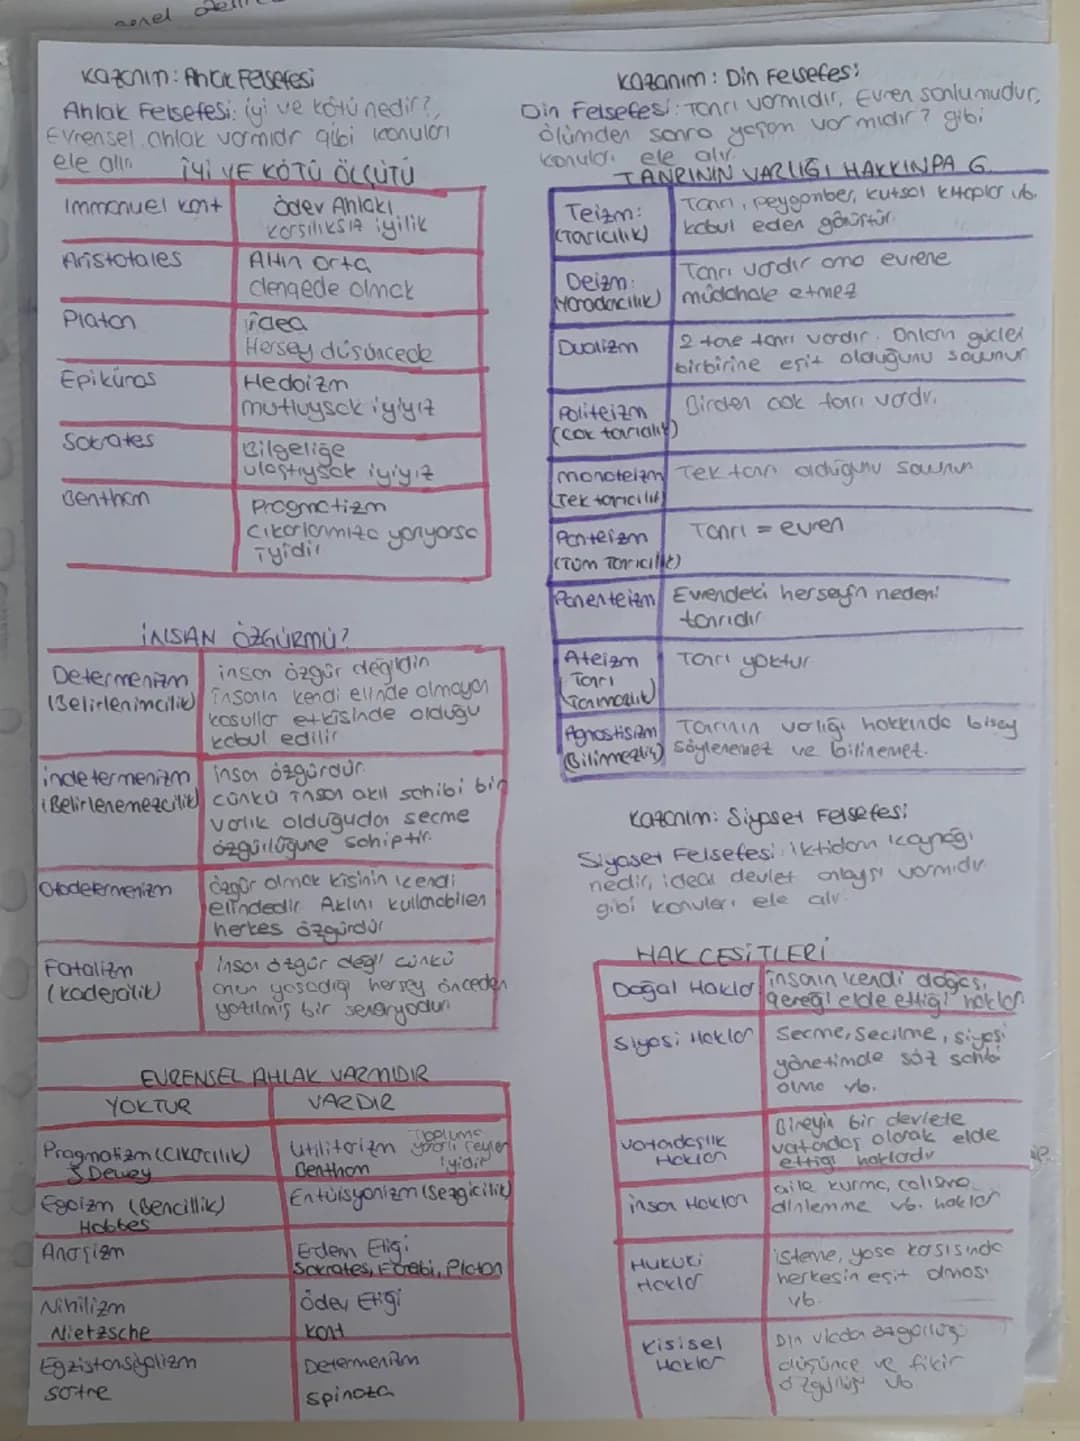 Kazanım: Ahlak Felsefesi
Ahlak Felsefesi: iyi ve kötü nedir?,
Evrensel ahlak varmıdır gibi konuları
ele alır.
İYİ VE KÖTÜ ÖLÇÜTÜ
Immanuel Kant
Ödev Ahlakı
Karşılıksız iyilik
Aristotales
Altın orta
dengede olmak
Platon
idea
Hersey düşüncede
Epiküros
Hedoizm
mutluysak iyiyiz
Sokrates
Bilgeliğe
ulaştıysak iyiyiz
Bentham
Pragmatizm
Cıkarlarımıza yarıyorsa
iyidir
İNSAN ÖZGÜRMÜ?
Determenizm
(Belirlenimcilik)
insan özgür değildin
insanın kendi elinde olmayan
kosullar etkisinde olduğu
kabul edilir
indetermenizm
(Belirlenemezcilik)
insan özgürdür.
cünkü insan akıl sahibi bir
varlık olduğudan secme
özgürlüğüne sahiptir.
Otodetermenizm
özgür olmak kisinin kendi
elindedir. Aklını kullanabilen
herkes özgürdür
Fatalizm
(kadercilik)
insan özgür değil cünkü
onun yasadığı hersey önceden
yazılmış bir senaryodur.
EVRENSEL AHLAK VARMIDIR
YOKTUR
VARDIR
Pragmatizm (Cıkarcılık)
J Dewey
Utilitarizm Topluma yararlı seyler iyidir
Benthom
Egoizm (Bencillik)
Hobbes
Entüisyonizm (Sezgicilik)
Anarşizm
Erdem Etiği
Sokrates, Farabi, Platon
Nihilizm
Nietzsche
Ödev Etiği
Kant
Egzistansiyalizm
Sartre
Determenizm
Spinoza
Kazanım: Din Felsefesi
Din Felsefesi: Tanrı varmıdır, Evren sonlumudur,
ölümden sonra yaşam varmıdır? gibi
konuları ele alır.
TANRININ VARLIĞI HAKKINDA G.
Teizm:
(Tarıcılık)
Tanrı, peygamber, kutsal kitaplar vb.
kabul eden görüştür.
Deizm:
(Yaradacılık)
Tanrı vardır ama evrene
müdahale etmez
Dualizm
2 tane tanrı vardır. Onların gücleri
birbirine eşit olduğunu savunur
Politeizm
(cok tarıalık)
Birden cok tanrı vardır.
monoteizm
(Tek tarıcılık)
Tek tanrı olduğunu savunur
Panteizm
(Tüm Tarıcılık)
Tanrı = evren
Panenteizm
Evrendeki herseyin nedeni
tanrıdır
Ateizm
Tarı
Tanımazlık)
Tanrı yoktur
Agnostisizm
(Bilinmezlik)
Tanrının varlığı hakkında bisey
söylenemez ve bilinemez.
Kazanım: Siyaset Felsefesi
Siyaset Felsefesi: iktidarın kaynağı
nedir, ideal devlet anlayışı varmıdır
gibi konuları ele alır.
HAK CESİTLERİ
Doğal Haklar
insanın kendi doğası
gereği elde ettiği haklar
Siyasi Haklar
Secme, Secilme, siyasi
yönetimde söz sahibi
olma vb.
Vatandaşlık
Hakları
Bireyin bir devlete
vatandaş olarak elde
ettiği haklardır
insan Hakları
aile kurma, calısma
dinlenme vb. haklar
Hukuki
Haklar
isteme, yasa karsısında
herkesin eşit olması
vb.
Kisisel
Haklar
Din vicdan özgürlüğü
düşünce ve fikir
özgürlüğü vb